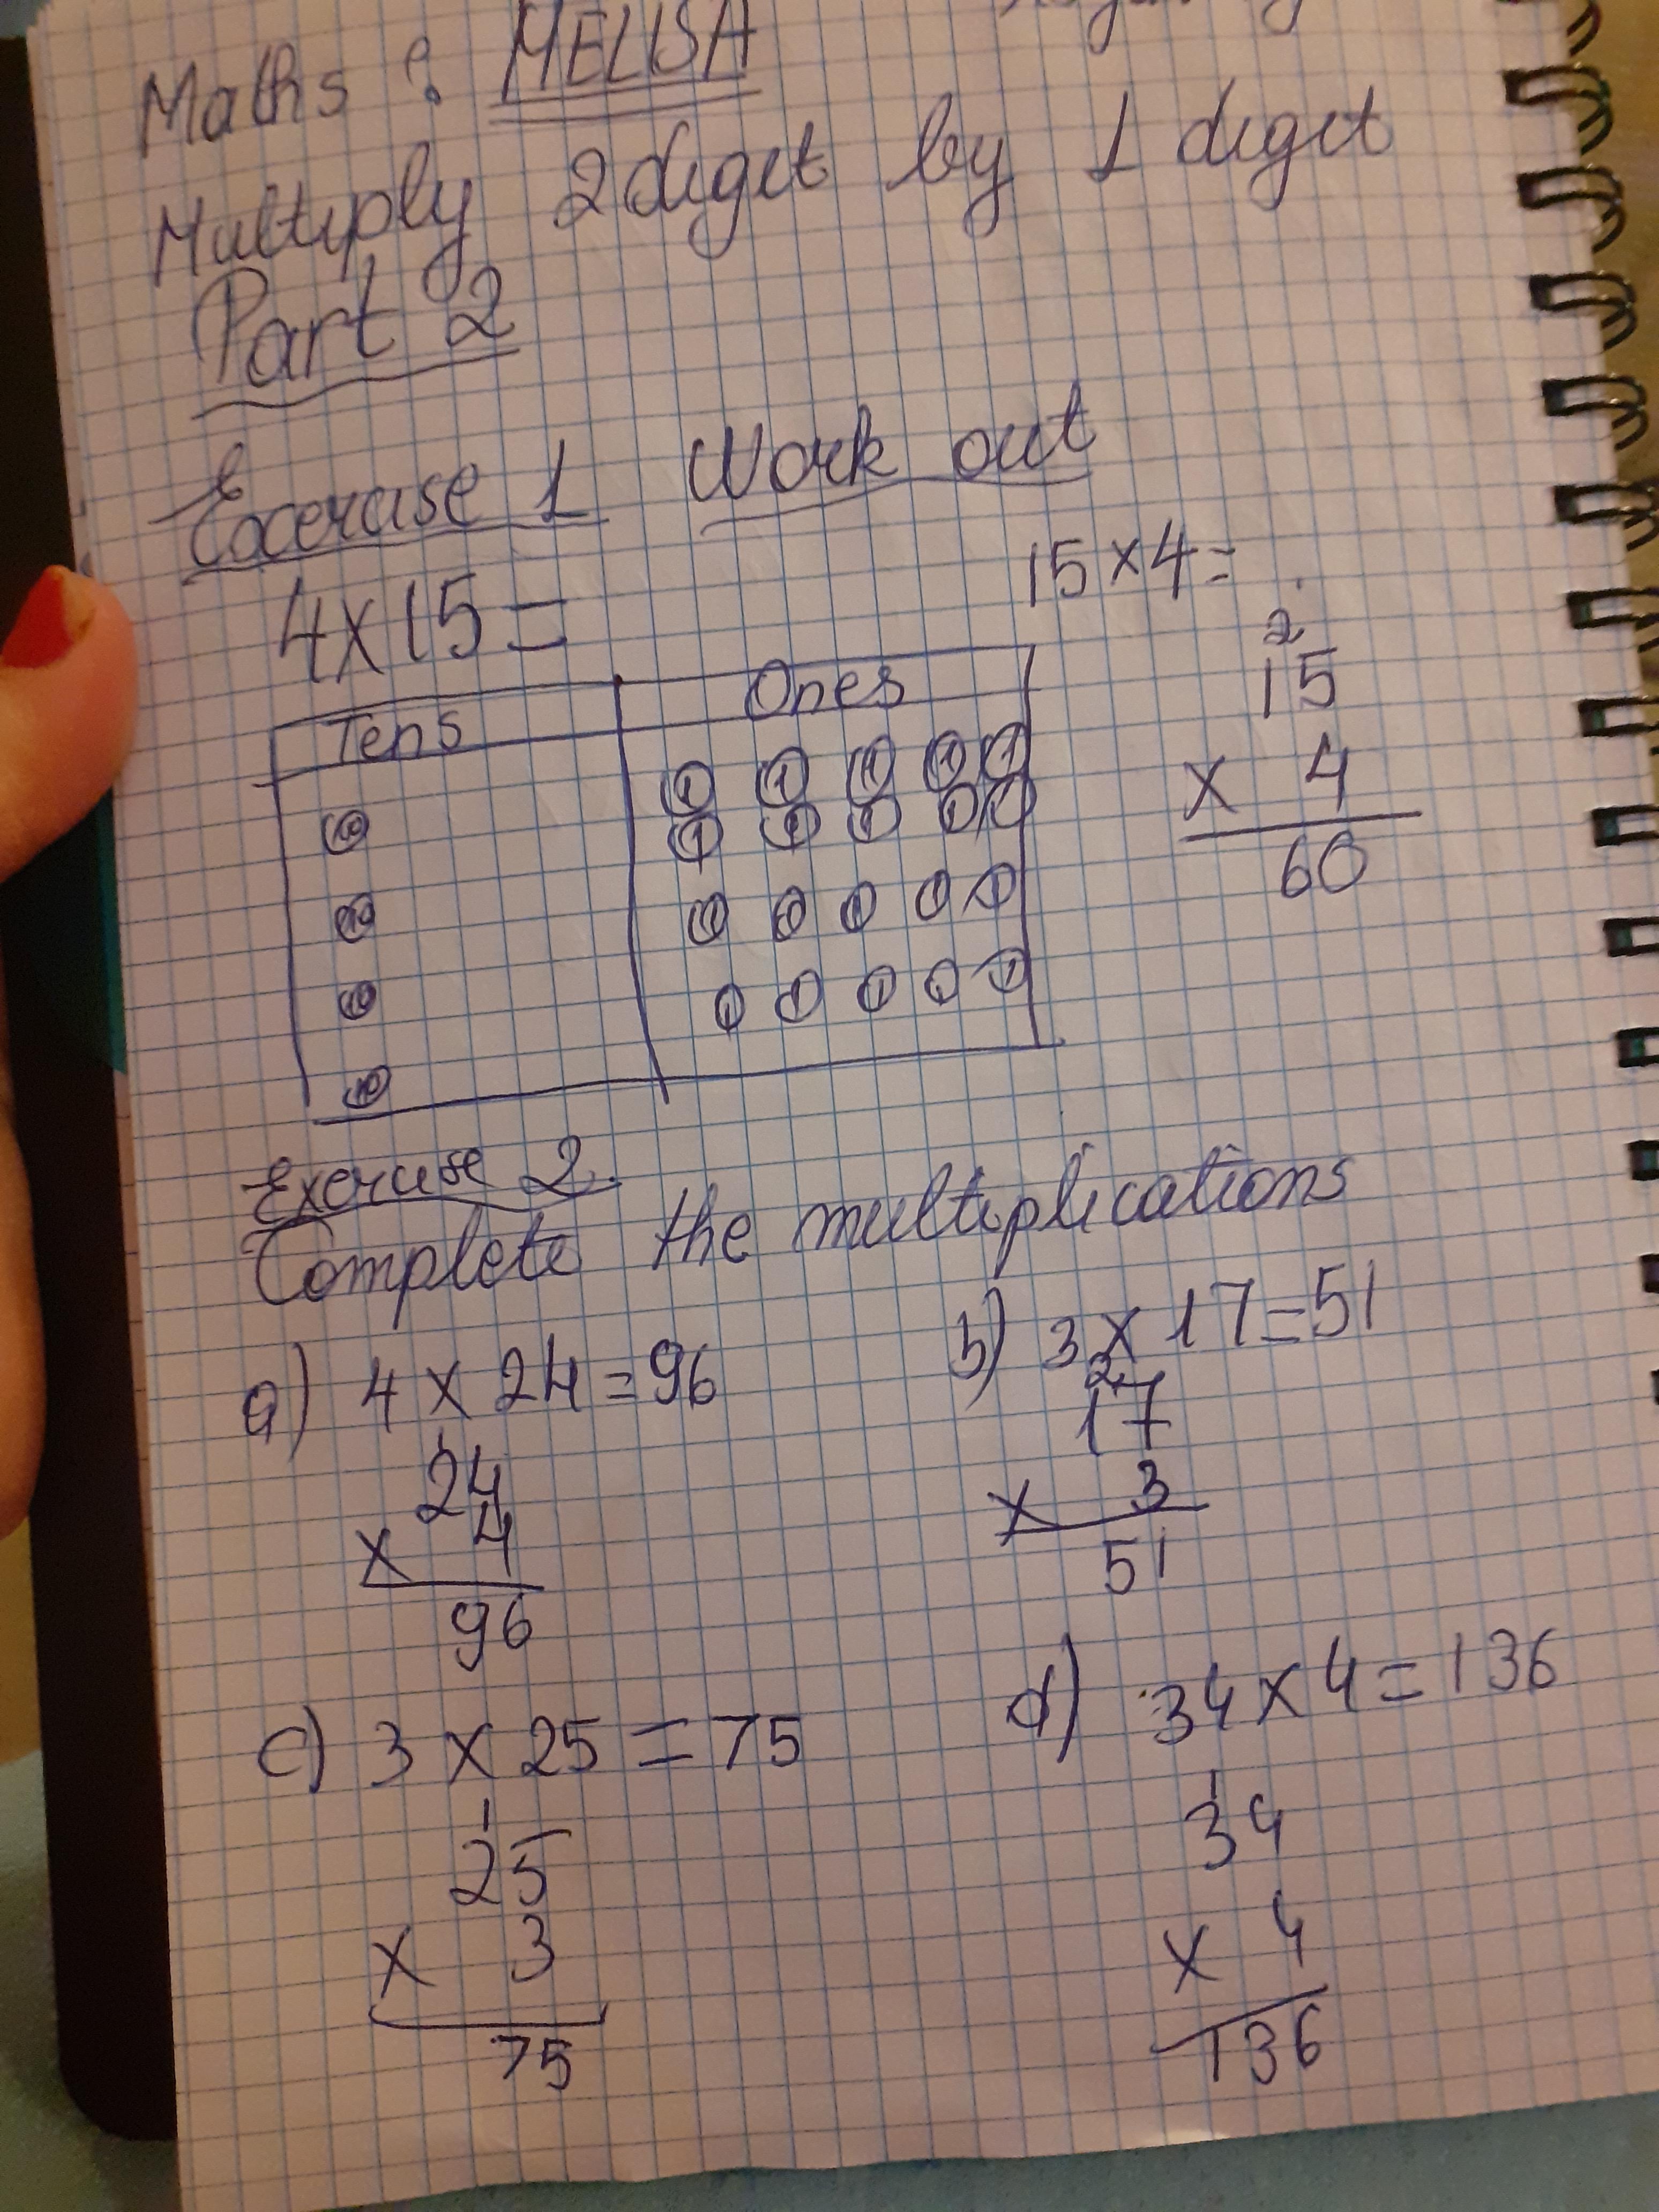 Maths : MELISA
Multiply 2 digit by 1 digit
Part 2
Exercise 1 Work out
4x15=
15x4=
Tens Ones
10
10
10
10
1 1 1 1 1
1 1 1 1 1
1 1 1 1 1
1 1 1 1 1
2
15
x 4
60
Exercise 2.
Complete the multiplications
a) 4 x 24 = 96
1
24
x 4
96
b) 3 x 17 = 51
2
17
x 3
51
c) 3 x 25 = 75
1
25
x 3
75
d) 34 x 4 = 136
1
34
x 4
136